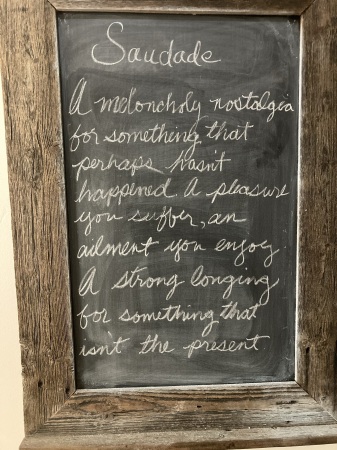 Saudade
A meloncholy nostalgia
for something that
perhaps hasn't
happened. A pleasure
you suffer, an
ailment you enjoy.
A strong longing
for something that
isn't the present.